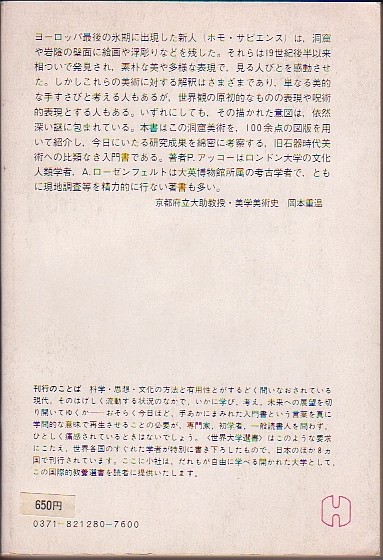 ヨーロッパ最後の氷期に出現した新人（ホモ・サピエンス）は，洞窟
や岩陰の壁面に絵画や浮彫りなどを残した。それらは19世紀後半以来
相ついで発見され，素朴な美や多様な表現で，見る人びとを感動させ
た。しかしこれらの美術に対する解釈はさまざまであり，単なる美的
な手すさびと考える人もあるが，世界観の原初的なものの表現や呪術
的表現とする人もある。いずれにしても，その描かれた意図は，依然
深い謎に包まれている。本書はこの洞窟美術を，100余点の図版を用
いて紹介し，今日にいたる研究成果を綿密に考察する，旧石器時代美
術への比類なき入門書である。著者P.アッコーはロンドン大学の文化
人類学者，A.ローゼンフェルトは大英博物館所属の考古学者で，とも
に現地調査等を精力的に行ない著書も多い。
京都府立大助教授・美学美術史　岡本重温
刊行のことば　科学・思想・文化の方法と有用性とがするどく問いなおされている
現代，そのはげしく流動する状況のなかで，いかに学び，考え，未来への展望を切
り開いてゆくか──おそらく今日ほど，手あかにまみれた入門書という言葉を真に
学問的な意味で再生させることの必要が，専門家，初学者，一般読書人を問わず，
ひとしく痛感されているときはないでしょう。〈世界大学選書〉はこのような要求
にこたえ，世界各国のすぐれた学者が特別に書き下ろしたもので，日本のほか8ヵ
国で刊行されています。ここに小社は，だれもが自由に学べる開かれた大学として，
この国際的教養選書を読者に提供いたします。
650円
0371-821280-7600